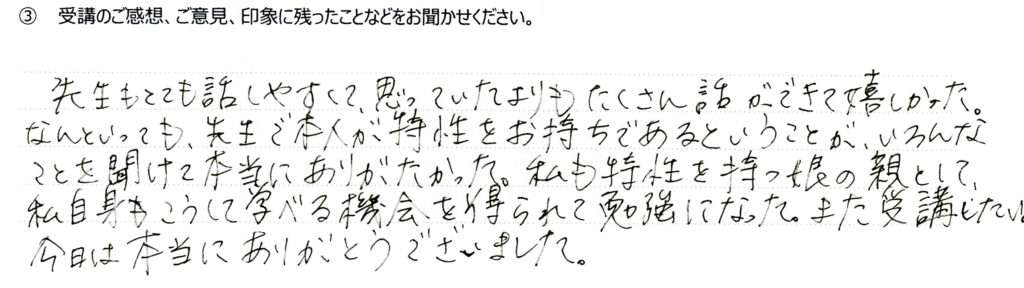 ③ 受講のご感想、ご意見、印象に残ったことなどをお聞かせください。
先生もとても話しやすくて、思っていたよりもたくさん話ができて嬉しかった。
なんといっても、先生ご本人が特性をお持ちであるということが、いろんな
ことを聞けて本当にありがたかった。私も特性を持つ娘の親として、
私自身もこうして学べる機会を得られて勉強になった。また受講したい
今日は本当にありがとうございました。